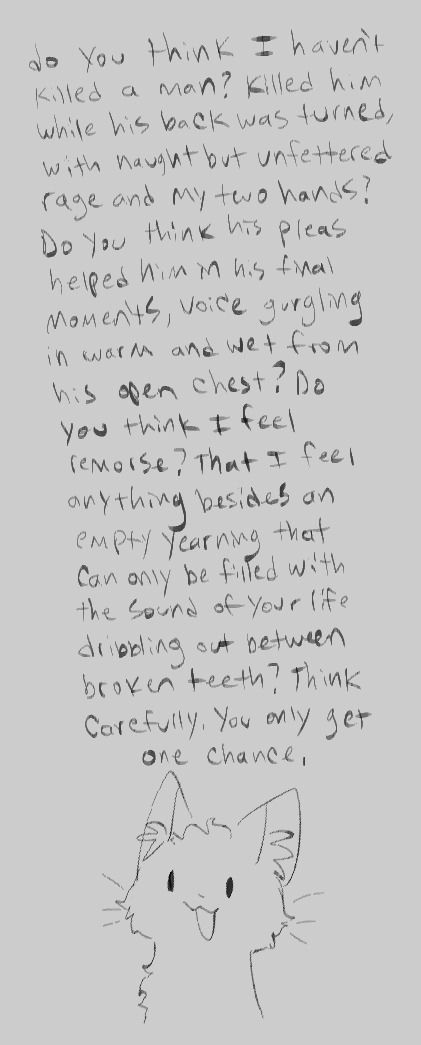 do you think I haven't
killed a man? Killed him
while his back was turned,
with naught but unfettered
rage and my two hands?
Do you think his pleas
helped him in his final
moments, voice gurgling
in warm and wet from
his open chest? Do
you think I feel
remorse? That I feel
anything besides an
empty yearning that
can only be filled with
the sound of your life
dribbling out between
broken teeth? Think
carefully. You only get
one chance.